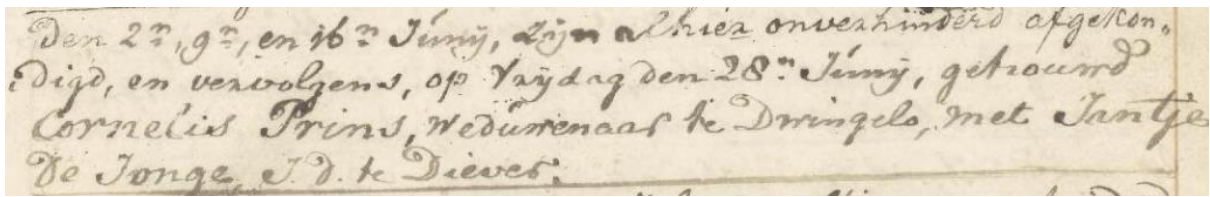 Den 2.n, 9.n, en 16.n Júnÿ, zijn alhier onverhinderd afgekon„
„digd, en vervolgens, op Vrÿdag den 28.n Júnÿ, getrouwd
Cornelis Prins, Wedúwenaar te Dwingelo, met Jantje
De Jonge J. d. te Diever.